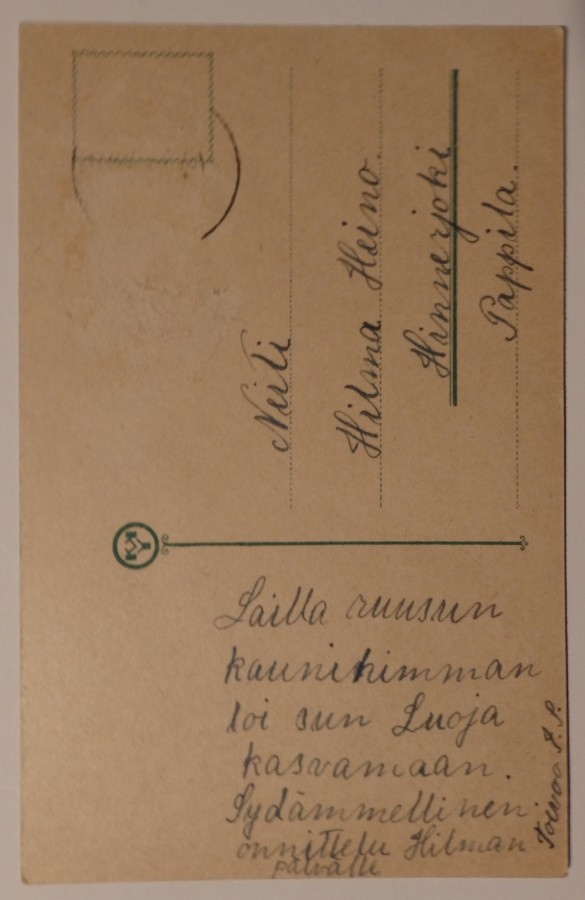 Neiti
Hilma Heino.
Hinnerjoki
Pappila.
Lailla ruusun
kaunihimman
loi sun Luoja
kasvamaan.
Sydämmellinen
onnittelu Hilman
päivälle
Toivoo